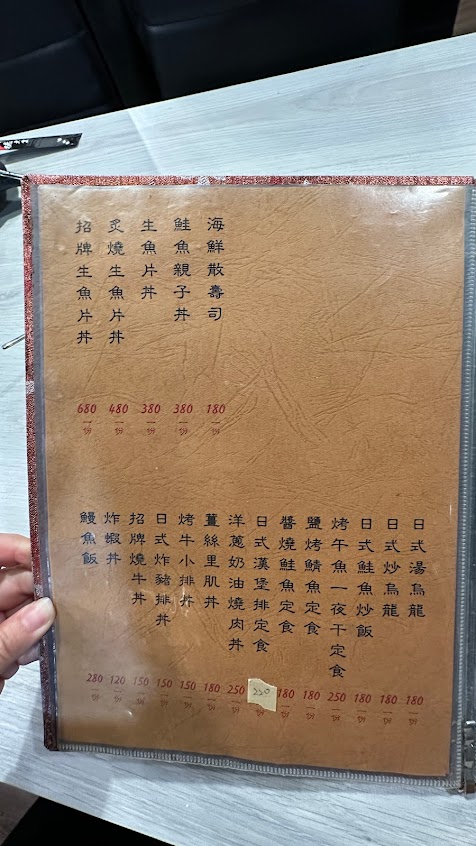 海鮮散壽司
180
鮭魚親子丼
380
生魚片丼
380
炙燒生魚片丼
480
招牌生魚片丼
680
日式湯烏龍
180
日式炒烏龍
180
日式鮭魚炒飯
180
烤午魚一夜干定食
250
鹽烤鯖魚定食
180
醬燒鮭魚定食
180
日式漢堡排定食
250
洋蔥奶油燒肉丼
250
薑絲里肌丼
180
烤牛小排丼
150
日式炸豬排丼
150
招牌燒牛丼
150
炸蝦丼
120
鰻魚飯
280